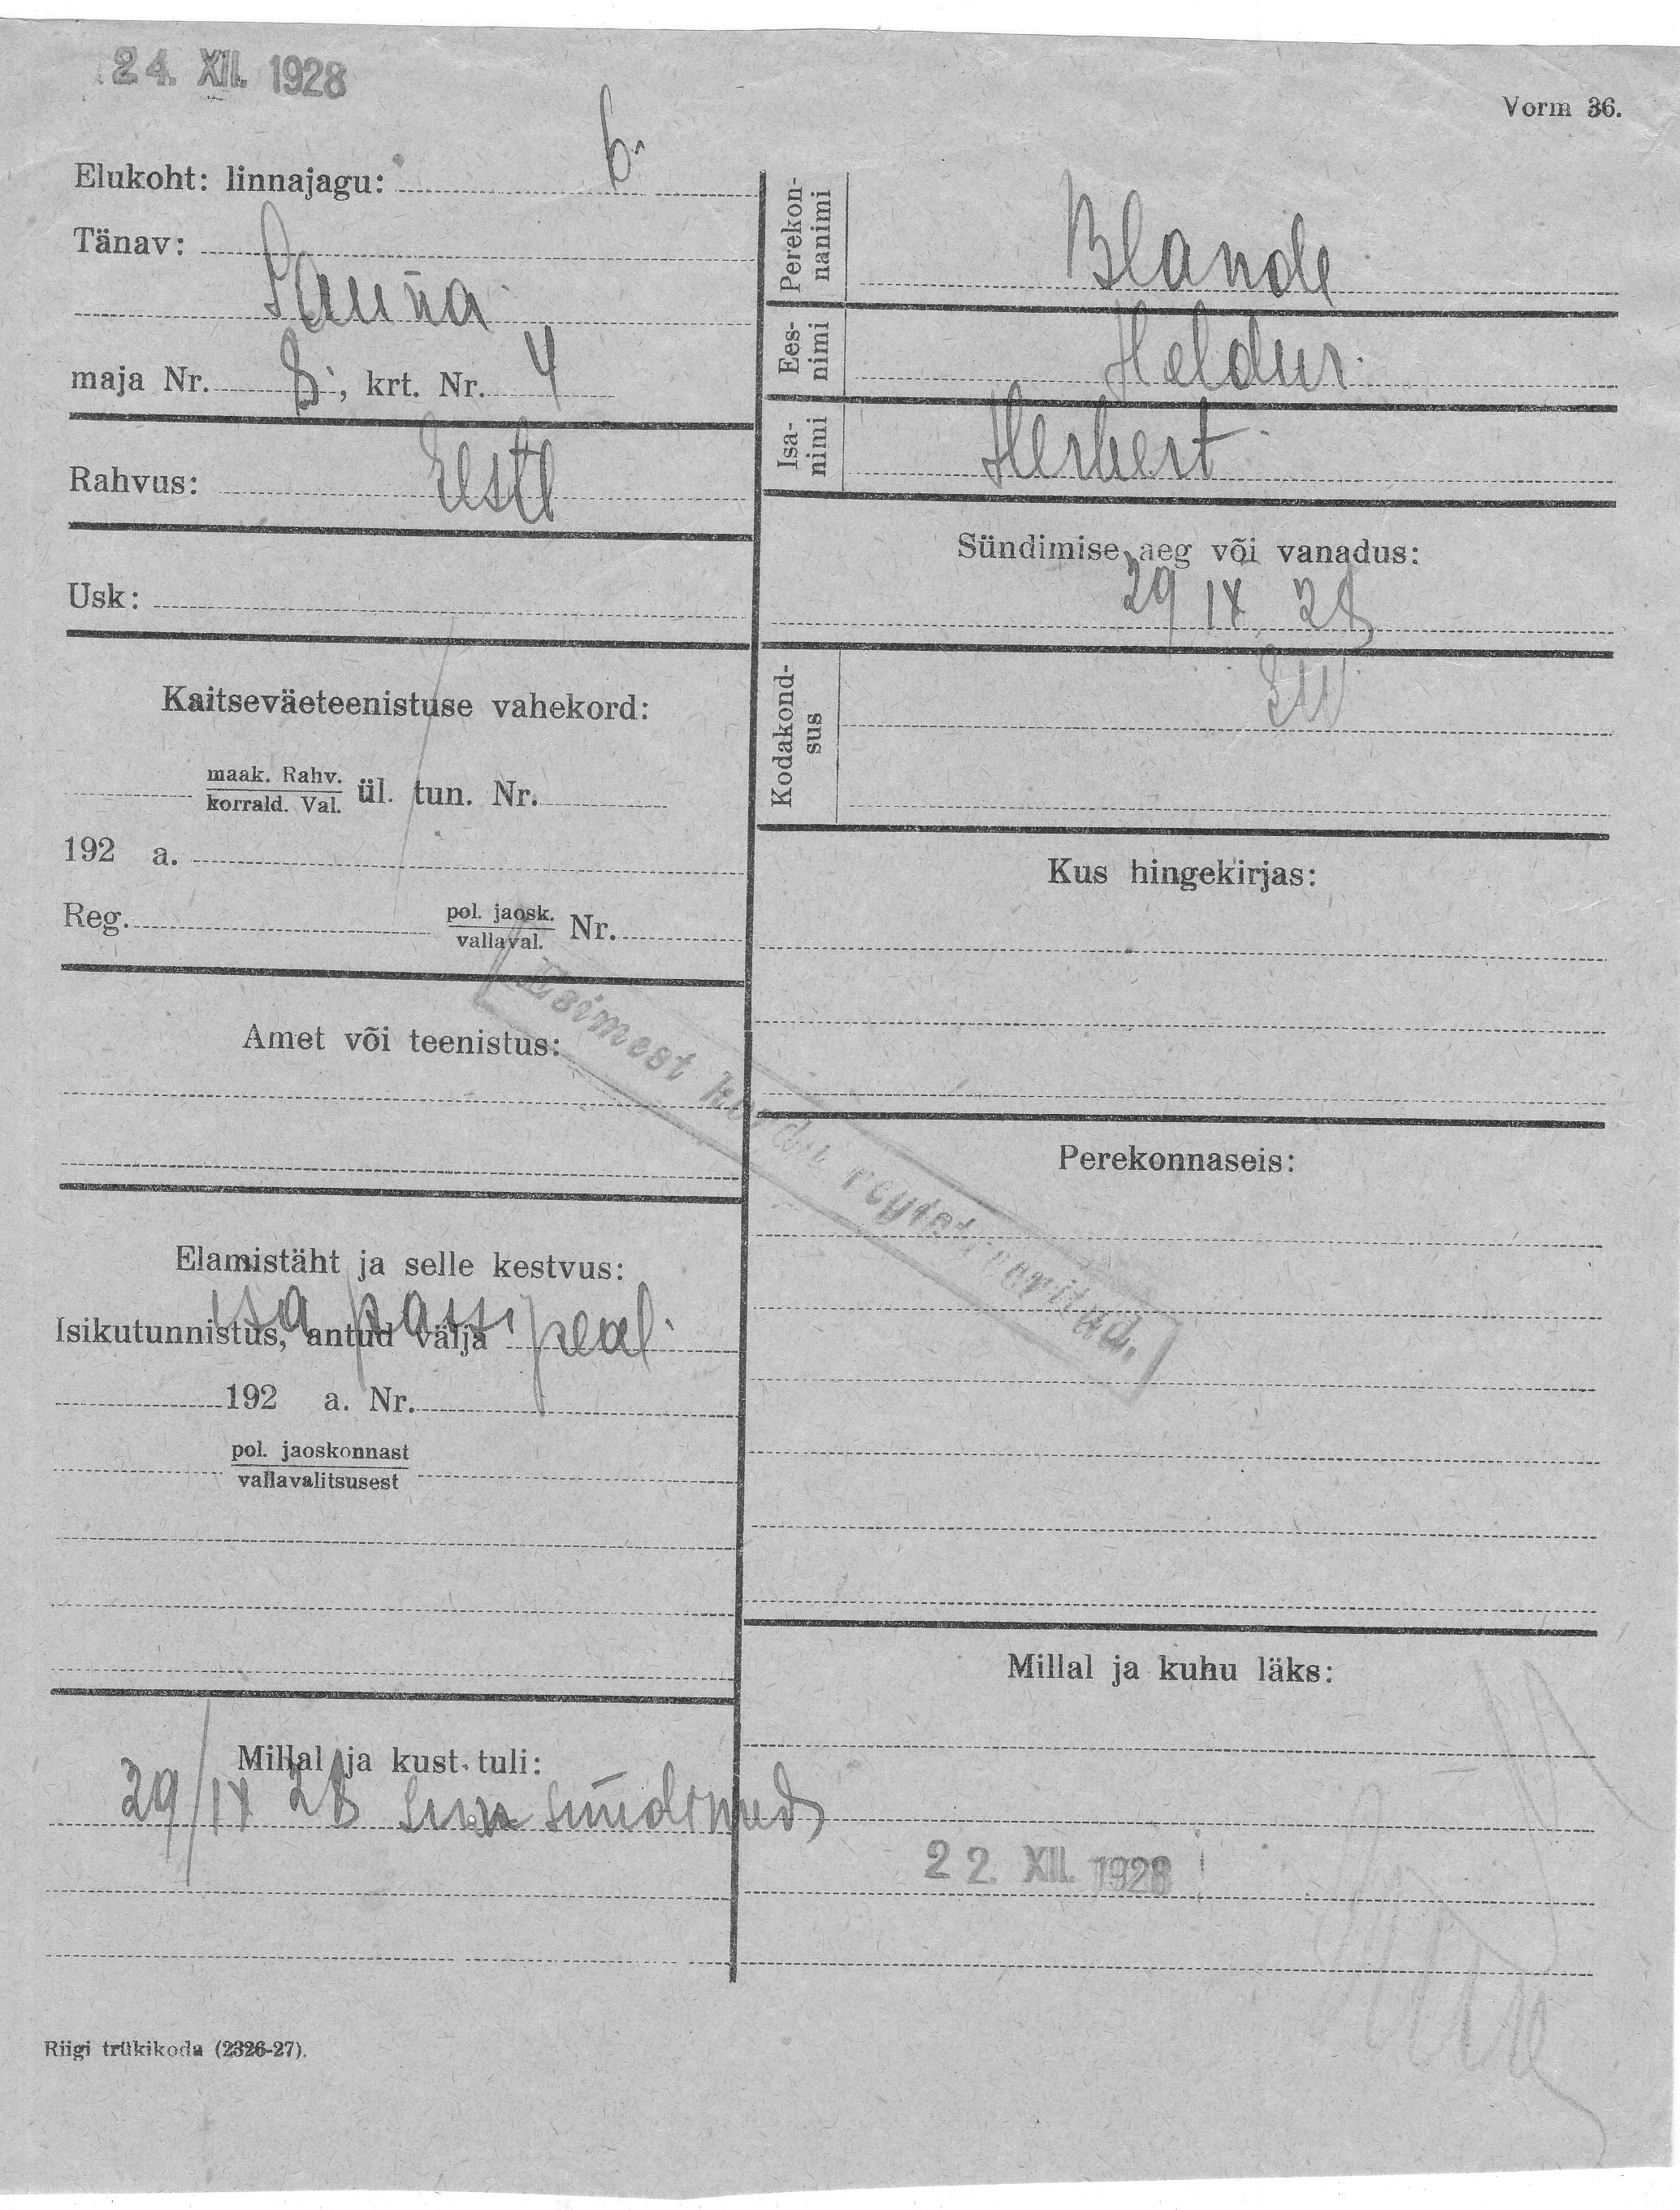 24. XII. 1928
Vorm 36.
Elukoht: linnajagu: 6.
Tänav:
Sauna
maja Nr. 8, krt. Nr. 4
Rahvus: Eesti
Usk:
Kaitseväeteenistuse vahekord:
maak. Rahv.
korrald. Val. ül. tun. Nr.
192 a.
Reg. pol. jaosk.
vallaval. Nr.
Amet või teenistus:
Elamistäht ja selle kestvus:
isa passi peal
Isikutunnistus, antud välja
192 a. Nr.
pol. jaoskonnast
vallavalitsusest
Millal ja kust tuli:
29/IX 28 siin sündinud
Perekon-
nanimi
Blande
Ees-
nimi
Heldur
Isa-
nimi
Herbert
Sündimise aeg või vanadus:
29 IX 28
Kodakond-
sus
EW
Kus hingekirjas:
Esimest kordu registreeritud.
Perekonnaseis:
Millal ja kuhu läks:
22. XII. 1928
Riigi trükikoda (2326-27).